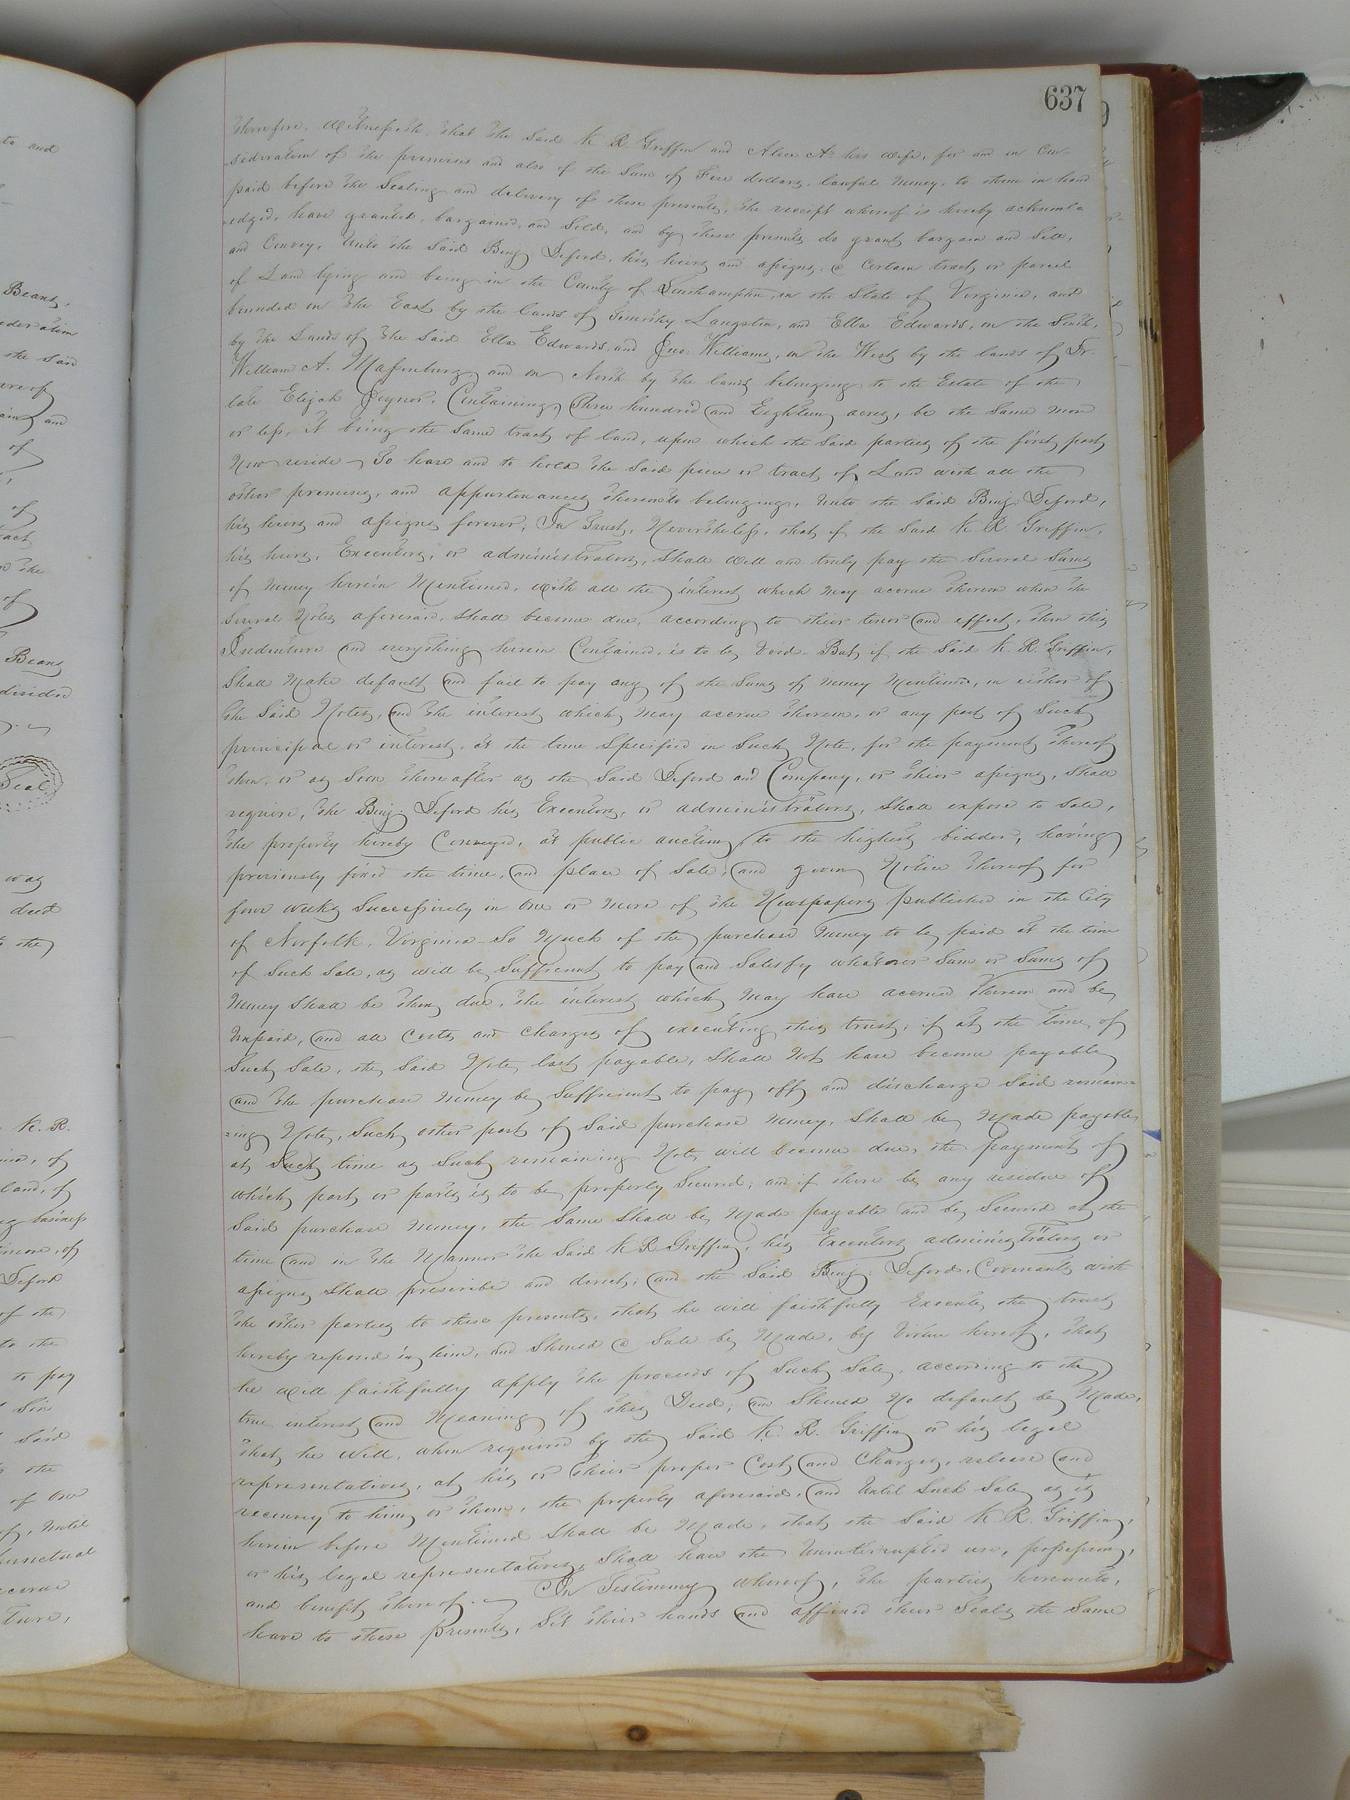 637
therefore, Witnesseth, that the said K R Griffin and Alice A. his wife, for and in Con-
sideration of the premises and also of the Sum of Five dollars, lawful money, to them in hand
paid before the Sealing and delivery of these presents, the receipt whereof is hereby acknowl-
edged, have granted, bargained, and Sold, and by these presents do grant bargain and Sell,
and Convey, Unto the Said Benj Deford, his heirs and assigns, a Certain tract or parcel
of Land lying and being in the County of Southampton, in the State of Virginia, and
bounded on the East by the lands of Timothy Langston, and Ella Edwards, on the South,
by the Lands of the Said Ella Edwards, and Jno. Williams, on the West by the lands of Dr.
William A. and on North by the lands belonging to the Estate of the
late Elijah Joyner, Containing, Three hundred and Eighteen acres, be the Same more
or less, it being the Same tract of land, upon which the said parties of the first part
Now reside. To have and to hold the Said piece or tract of Land with all the
other premises, and appurtenances thereunto belonging, unto the Said Benj Deford,
his heirs and assigns forever, In Trust, Nevertheless, that if the Said K R Griffin,
his heirs, Executors, or administrators, shall well and truly pay the Several Sums
of money herein Mentioned, with all the interest which may accrue thereon when the
Several Notes aforesaid, shall become due, according to their tenor and effect, then this
Indenture and everything herein Contained, is to be Void. But if the Said K. R. Griffin,
Shall Make default and fail to pay any of the Sums of money Mentioned, in either of
the Said Notes, and the interest which may accrue thereon, or any part of Such
principal or interest, at the time Specified in Such Note, for the payment thereof
then, or as Soon thereafter as the Said Deford and Company, or their assigns, shall
require, the Benj Deford his Executors, or administrators, shall expose to Sale,
the property hereby Conveyed, at public auction, to the highest bidder, having
previously fixed the time, and place of Sale, and given Notice thereof for
four weeks Successively in One or More of the Newspapers published in the City
of Norfolk, Virginia So Much of the purchase money to be paid at the time
of Such Sale, as will be Sufficient to pay and Satisfy whatever Sum or Sums of
Money shall be then due, the interest which may have accrued thereon and be
Unpaid, and all costs and charges of executing this trust, if at the time of
Such Sale, the Said Note last payable, Shall Not have become payable
and the purchase money be Sufficient to pay off and discharge Said remain-
ing Note, Such other part of Said purchase money, Shall be Made payable
at Such time as Such remaining Note will become due, the payment of
which part or parts is to be properly Secured; and if there be any residue of
Said purchase money, the Same Shall be Made payable and be Secured at the
time and in the Manner the Said K R Griffin, his Executors, administrators or
assigns Shall prescribe and direct; and the Said Benj. Deford, Covenants with
the other parties to these presents, that he will faithfully Execute the trust
hereby reposed in him, and Should a Sale be Made, by Virtue hereof, that
he will faithfully apply the proceeds of Such Sale, according to the
true interest and Meaning of this Deed; and Should No default be Made,
that he Will, when required by the Said K. R. Griffin or his legal
representatives, at his or their proper Cost and Charges, release and
reconvey to him or them, the property aforesaid, and Until Such Sale as is
herein before Mentioned shall be Made, that the Said K R. Griffin,
or his legal representatives, Shall have the Uninterrupted use, possession,
and benefit thereof. In Testimony whereof, the parties hereunto,
have to these presents, Set their hands and affixed their Seals the Same